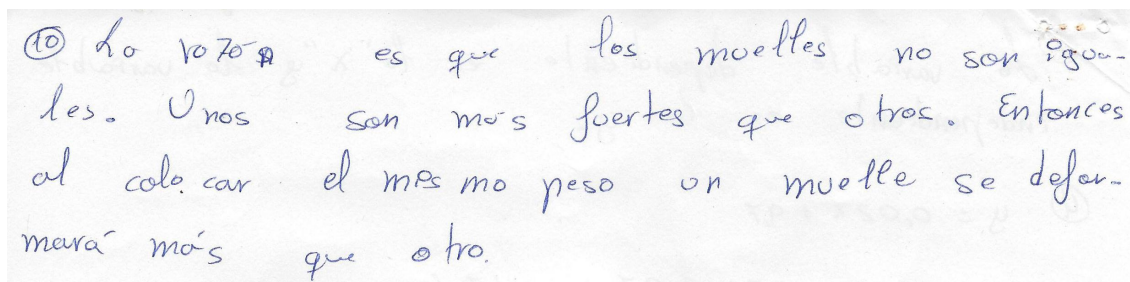 ⑩ La razón es que los muelles no son igua-
les. Unos son más fuertes que otros. Entonces
al colocar el mismo peso un muelle se defor-
mará más que otro.